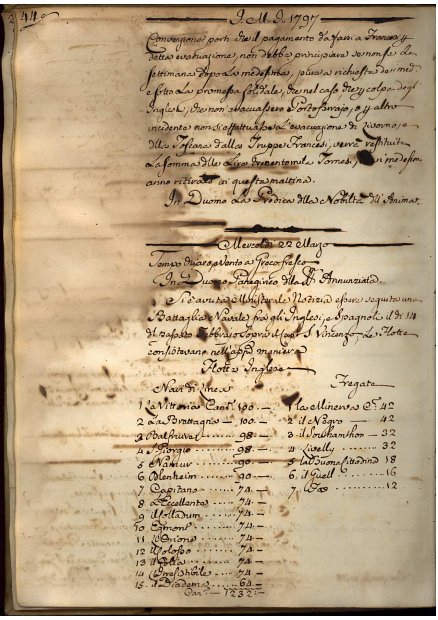 440
A. M. D. 1797
Convenzione porti che il pagamento da farsi a Francesi p
detta evacuazione, non debba principiare se non se la
settimana dopo la medesima, pura richiesta dei med.
e sotto la promessa solidale, che nel caso che p colpa degl
Inglesi, che non evacuassero Portoferrajo, o p altro
incidente non si effettuasse l'evacuazione di Livorno, e
della Toscana dalle Truppe Francesi, verrà restituita
la somma delle Lire trecentomila Tornesi, medesimi
anno ritirato ai questa mattina.
In Duomo la Predica della Nobiltà dell'Anima.
Mercoldì 22 Marzo
Tempo chiaro, e Vento a Greco fresco
In Duomo Panegirico della SS Annunziata.
Si è avuta Ministeriale Notizia essere seguita una
Battaglia Navale fra gli Inglesi, e Spagnoli il dì 14
del passato Febbrajo sopra il Capo S. Vincenzo. Le Flotte
consistevano nell'appie maniera
Flotta Inglese
Navi di linea
Fregate
1 La Vittoria Can. 100
1 La Minerva C. 42
2 La Brettagna 100
2 il Negro 42
3 Balfruval 98
3 il Southamthon 32
4 S. Giorgio 98
4 Livelly 32
5 Namur 90
5 La Buona Cittadina 18
6 Blenheim 90
6 il Guell 16
7 Capitano 74
7 Fox 12
8 L'Eccellente 74
9 il Colladum 74
10 Egmont 74
11 L'Orione 74
12 il Colosso 74
13 74
14 L'Irresistibile 74
15 il Diadema 64
Can. 1232